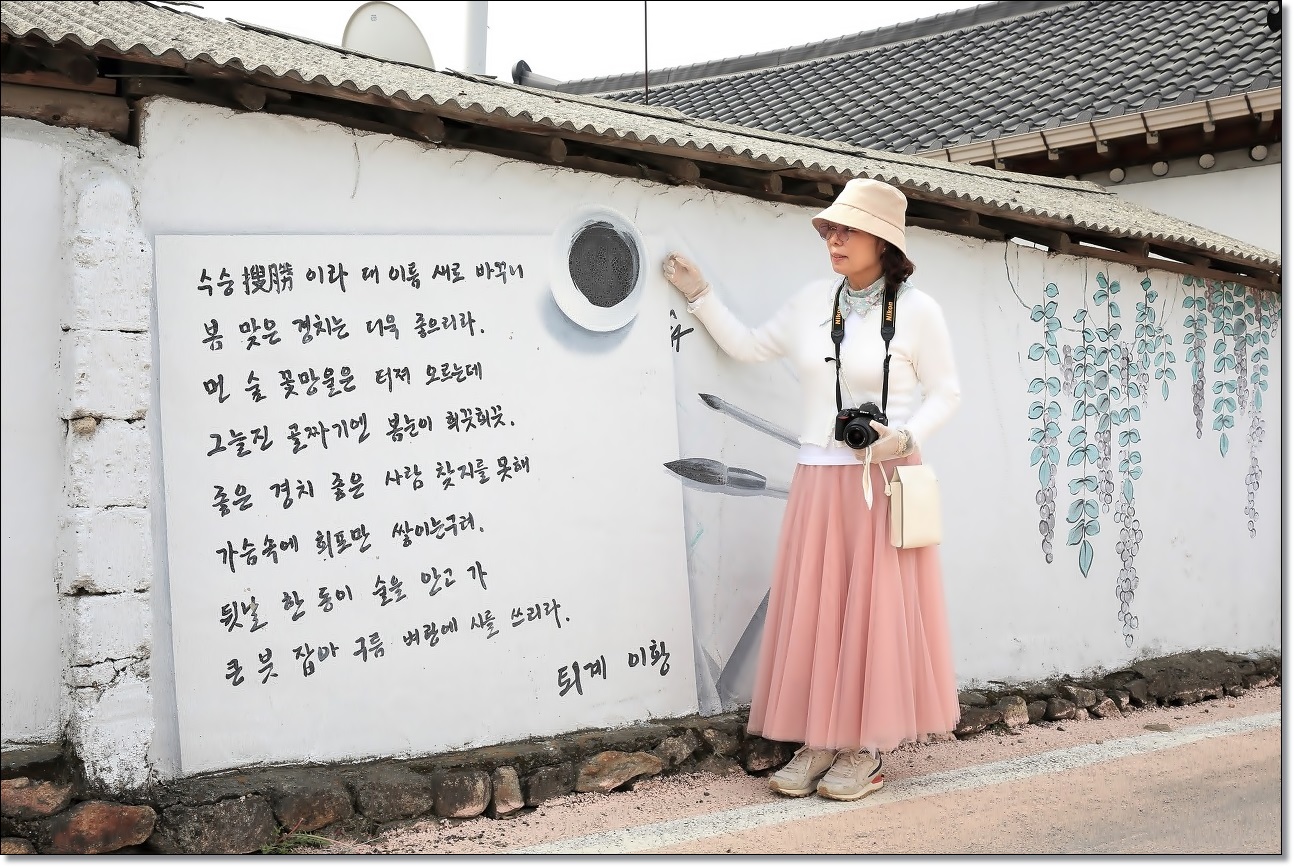 수승 搜勝 이라 대 이름 새로 바꾸니
봄 맞은 경치는 더욱 좋으리라.
먼 숲 꽃망울은 터져 오르는데
그늘진 골짜기엔 봄눈이 희끗희끗.
좋은 경치 좋은 사람 찾지를 못해
가슴속에 회포만 쌓이는구려.
뒷날 한 동이 술을 안고 가
큰 붓 잡아 구름 벼랑에 시를 쓰리라.
퇴계 이황
Nikon